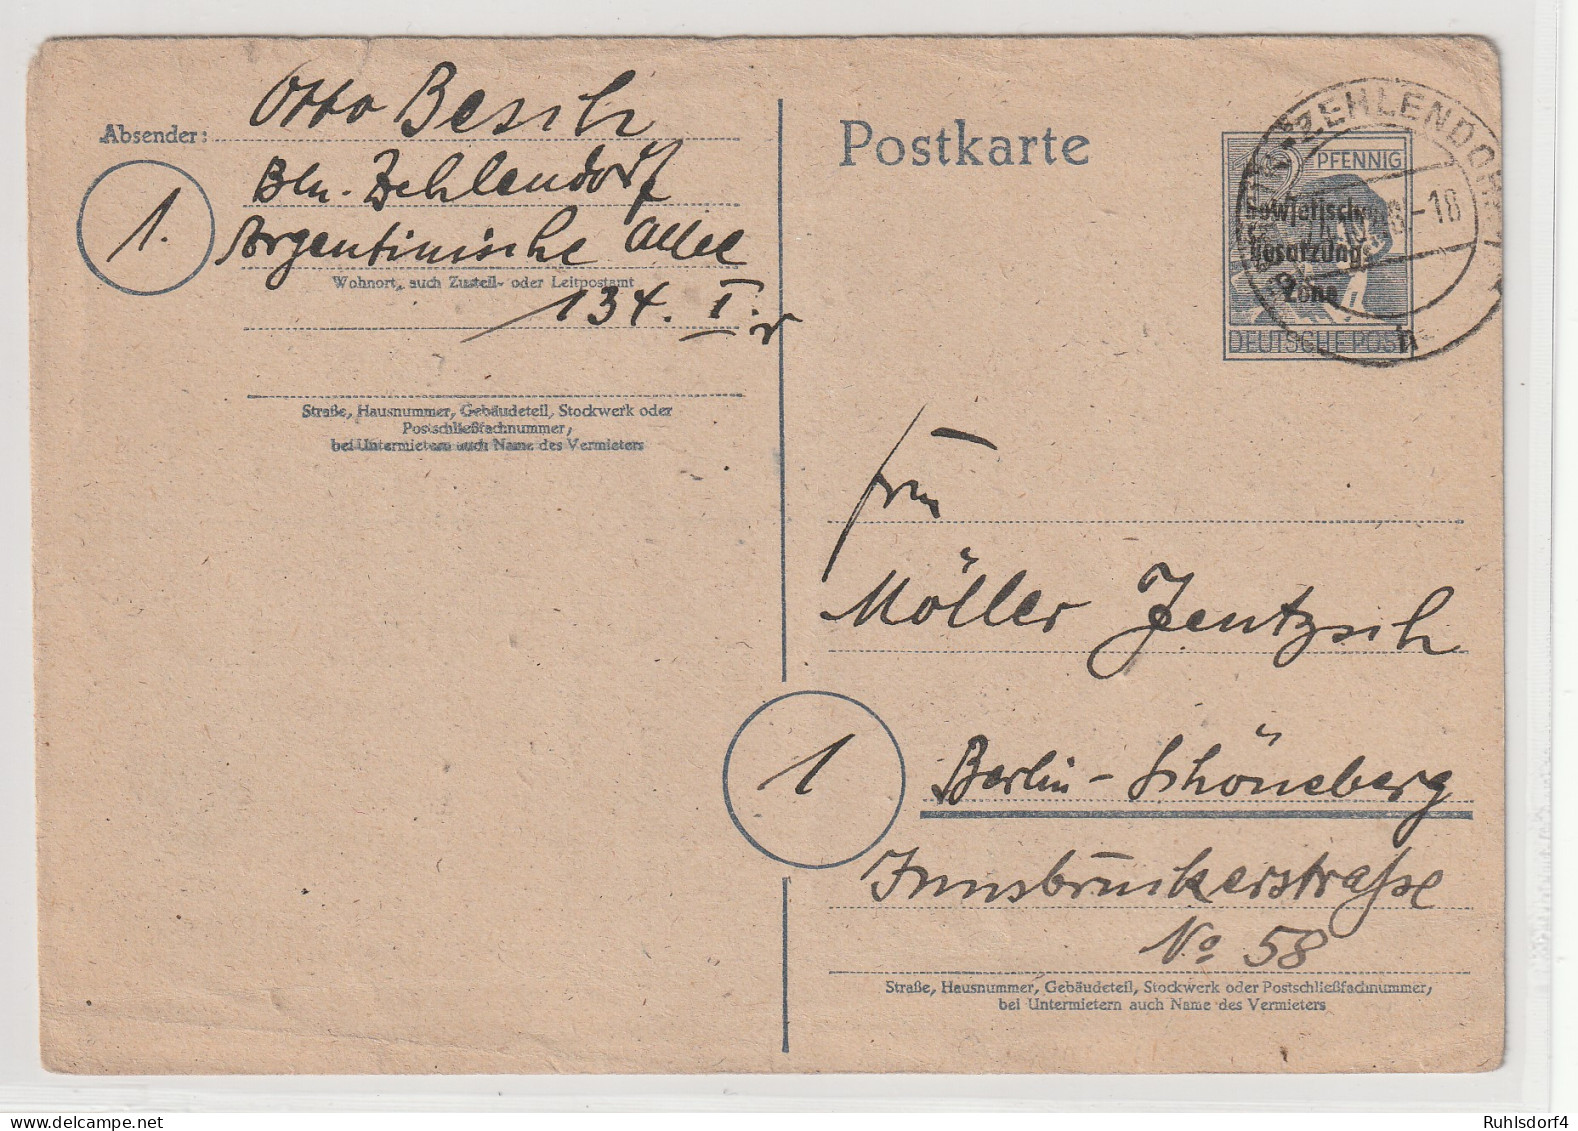 Absender: Otto Besch
1.
Bln. Zehlendorf
Argentinische Allee
Wohnort, auch Zustell- oder Leitpostamt
134. I. r
Straße, Hausnummer, Gebäudeteil, Stockwerk oder
Postschließfachnummer,
bei Untermietern auch Name des Vermieters
Postkarte
12 PFENNIG
Sowjetische
Besatzungs
Zone
DEUTSCHE POST
ZEHLENDORF
-18
Möller Jentzsch
1
Berlin-Schöneberg
Innsbruckerstraße
No 58
Straße, Hausnummer, Gebäudeteil, Stockwerk oder Postschließfachnummer,
bei Untermietern auch Name des Vermieters
Ruhlsdorf4